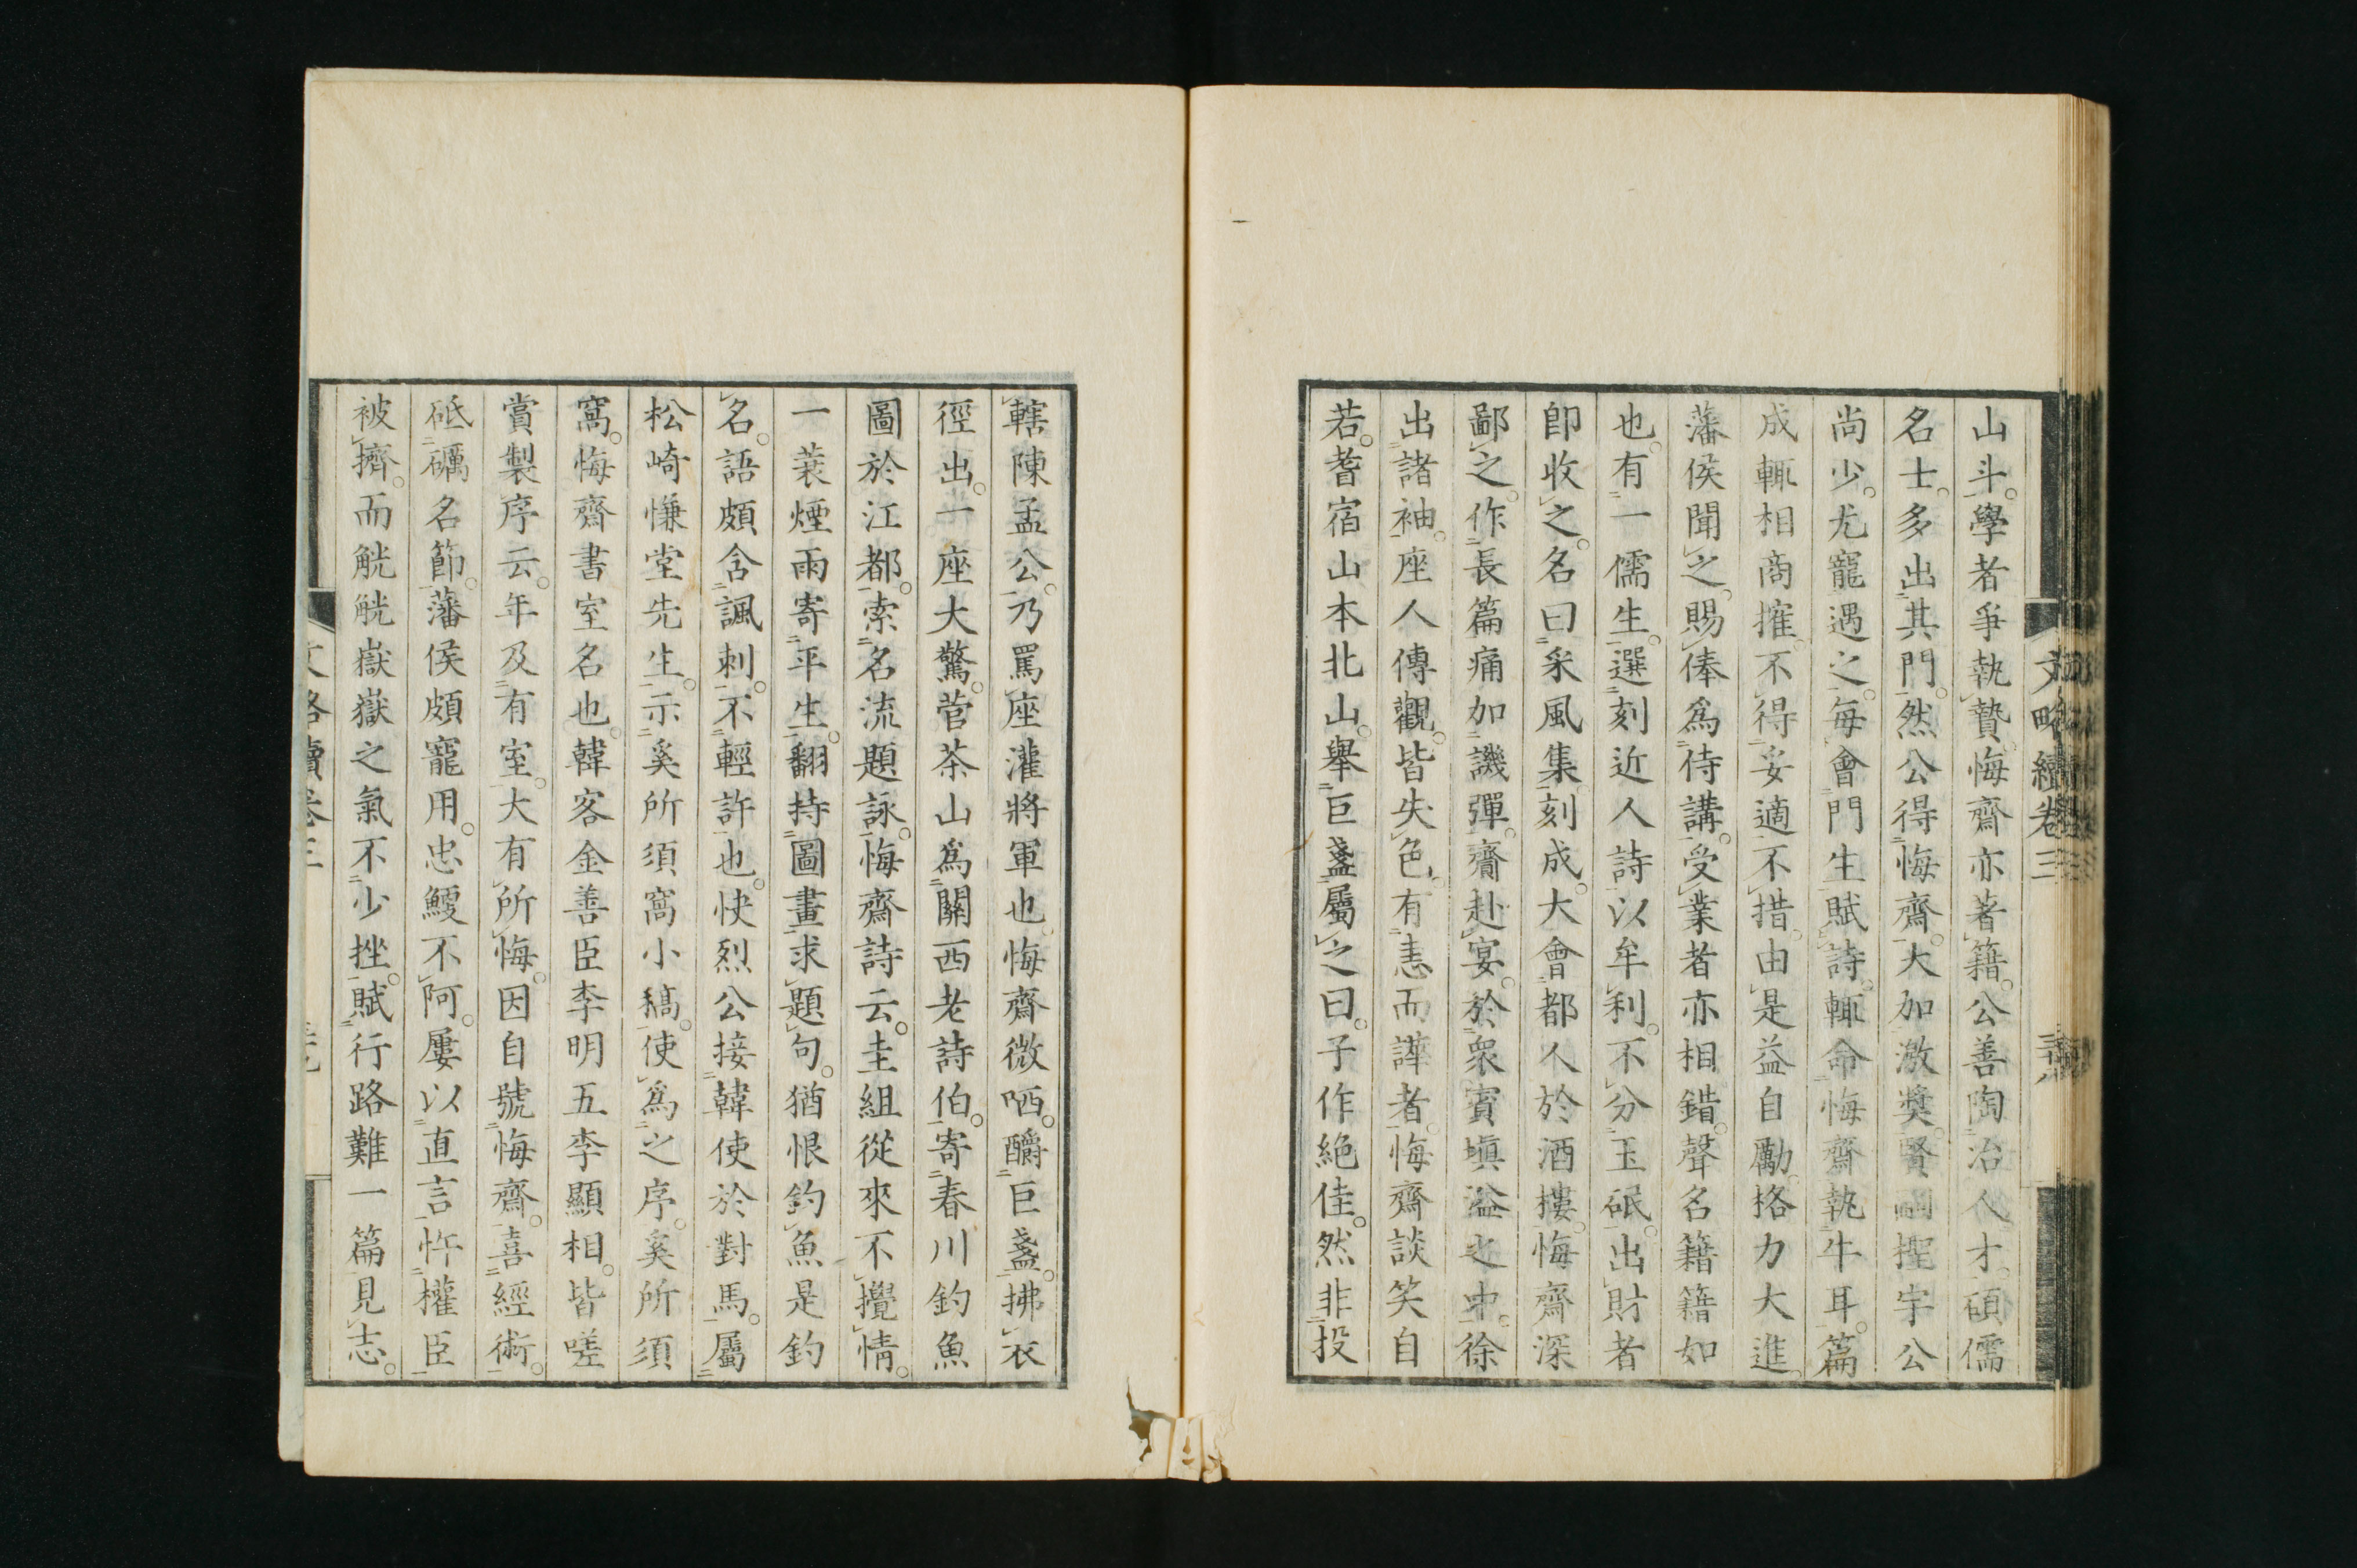 山斗。學者爭執贄。悔齋亦著籍。公善陶冶人才。碩儒
名士。多出其門。然公得悔齋。大加激奬。賢嗣檉宇公
尚少。尤寵遇之。每會門生賦詩。輒命悔齋執牛耳。篇
成輒相商搉。不得妥適不措。由是益自勵。挌力大進。
藩侯聞之。賜俸爲侍講。受業者亦相錯。聲名籍籍如
也。有一儒生。選刻近人詩以牟利。不分玉砥。出財者
即收之。名曰采風集。刻成。大會都人於酒摟。悔齋深
鄙之。作長篇痛加譏彈。齎赴宴。於衆賓塡溢之中。徐
出諸袖。座人傳觀。皆失色。有恚而譁者。悔齋談笑自
若。耆宿山本北山。舉巨盞屬之曰。子作絶佳。然非投
文略續卷三
三十八
轄陳孟公。乃罵座灌將軍也。悔齋微哂。釂巨盞。拂衣
徑出。一座大驚。菅茶山爲關西老詩伯。寄春川釣魚
圖於江都。索名流題詠。悔齋詩云。圭組從來不攪情。
一蓑煙雨寄平生。翻持圖畫求題句。猶恨釣魚是釣
名。語頗含諷刺。不輕許也。快烈公接韓使於對馬。屬
松崎慊堂先生。示奚所須窩小稿。使爲之序。奚所須
窩。悔齋書室名也。韓客金善臣李明五李顯相。皆嗟
賞製序云。年及有室。大有所悔。因自號悔齋。喜經術。
砥礪名節。藩侯頗寵用。忠鯁不阿。屢以直言忤權臣
被擠。而觥觥嶽嶽之氣不少挫。賦行路難一篇見志。
文略續卷三